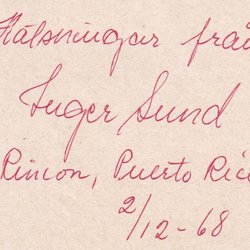 Hälsningar från
Inger Sund
Rincon, Puerto Rico
2/12-68